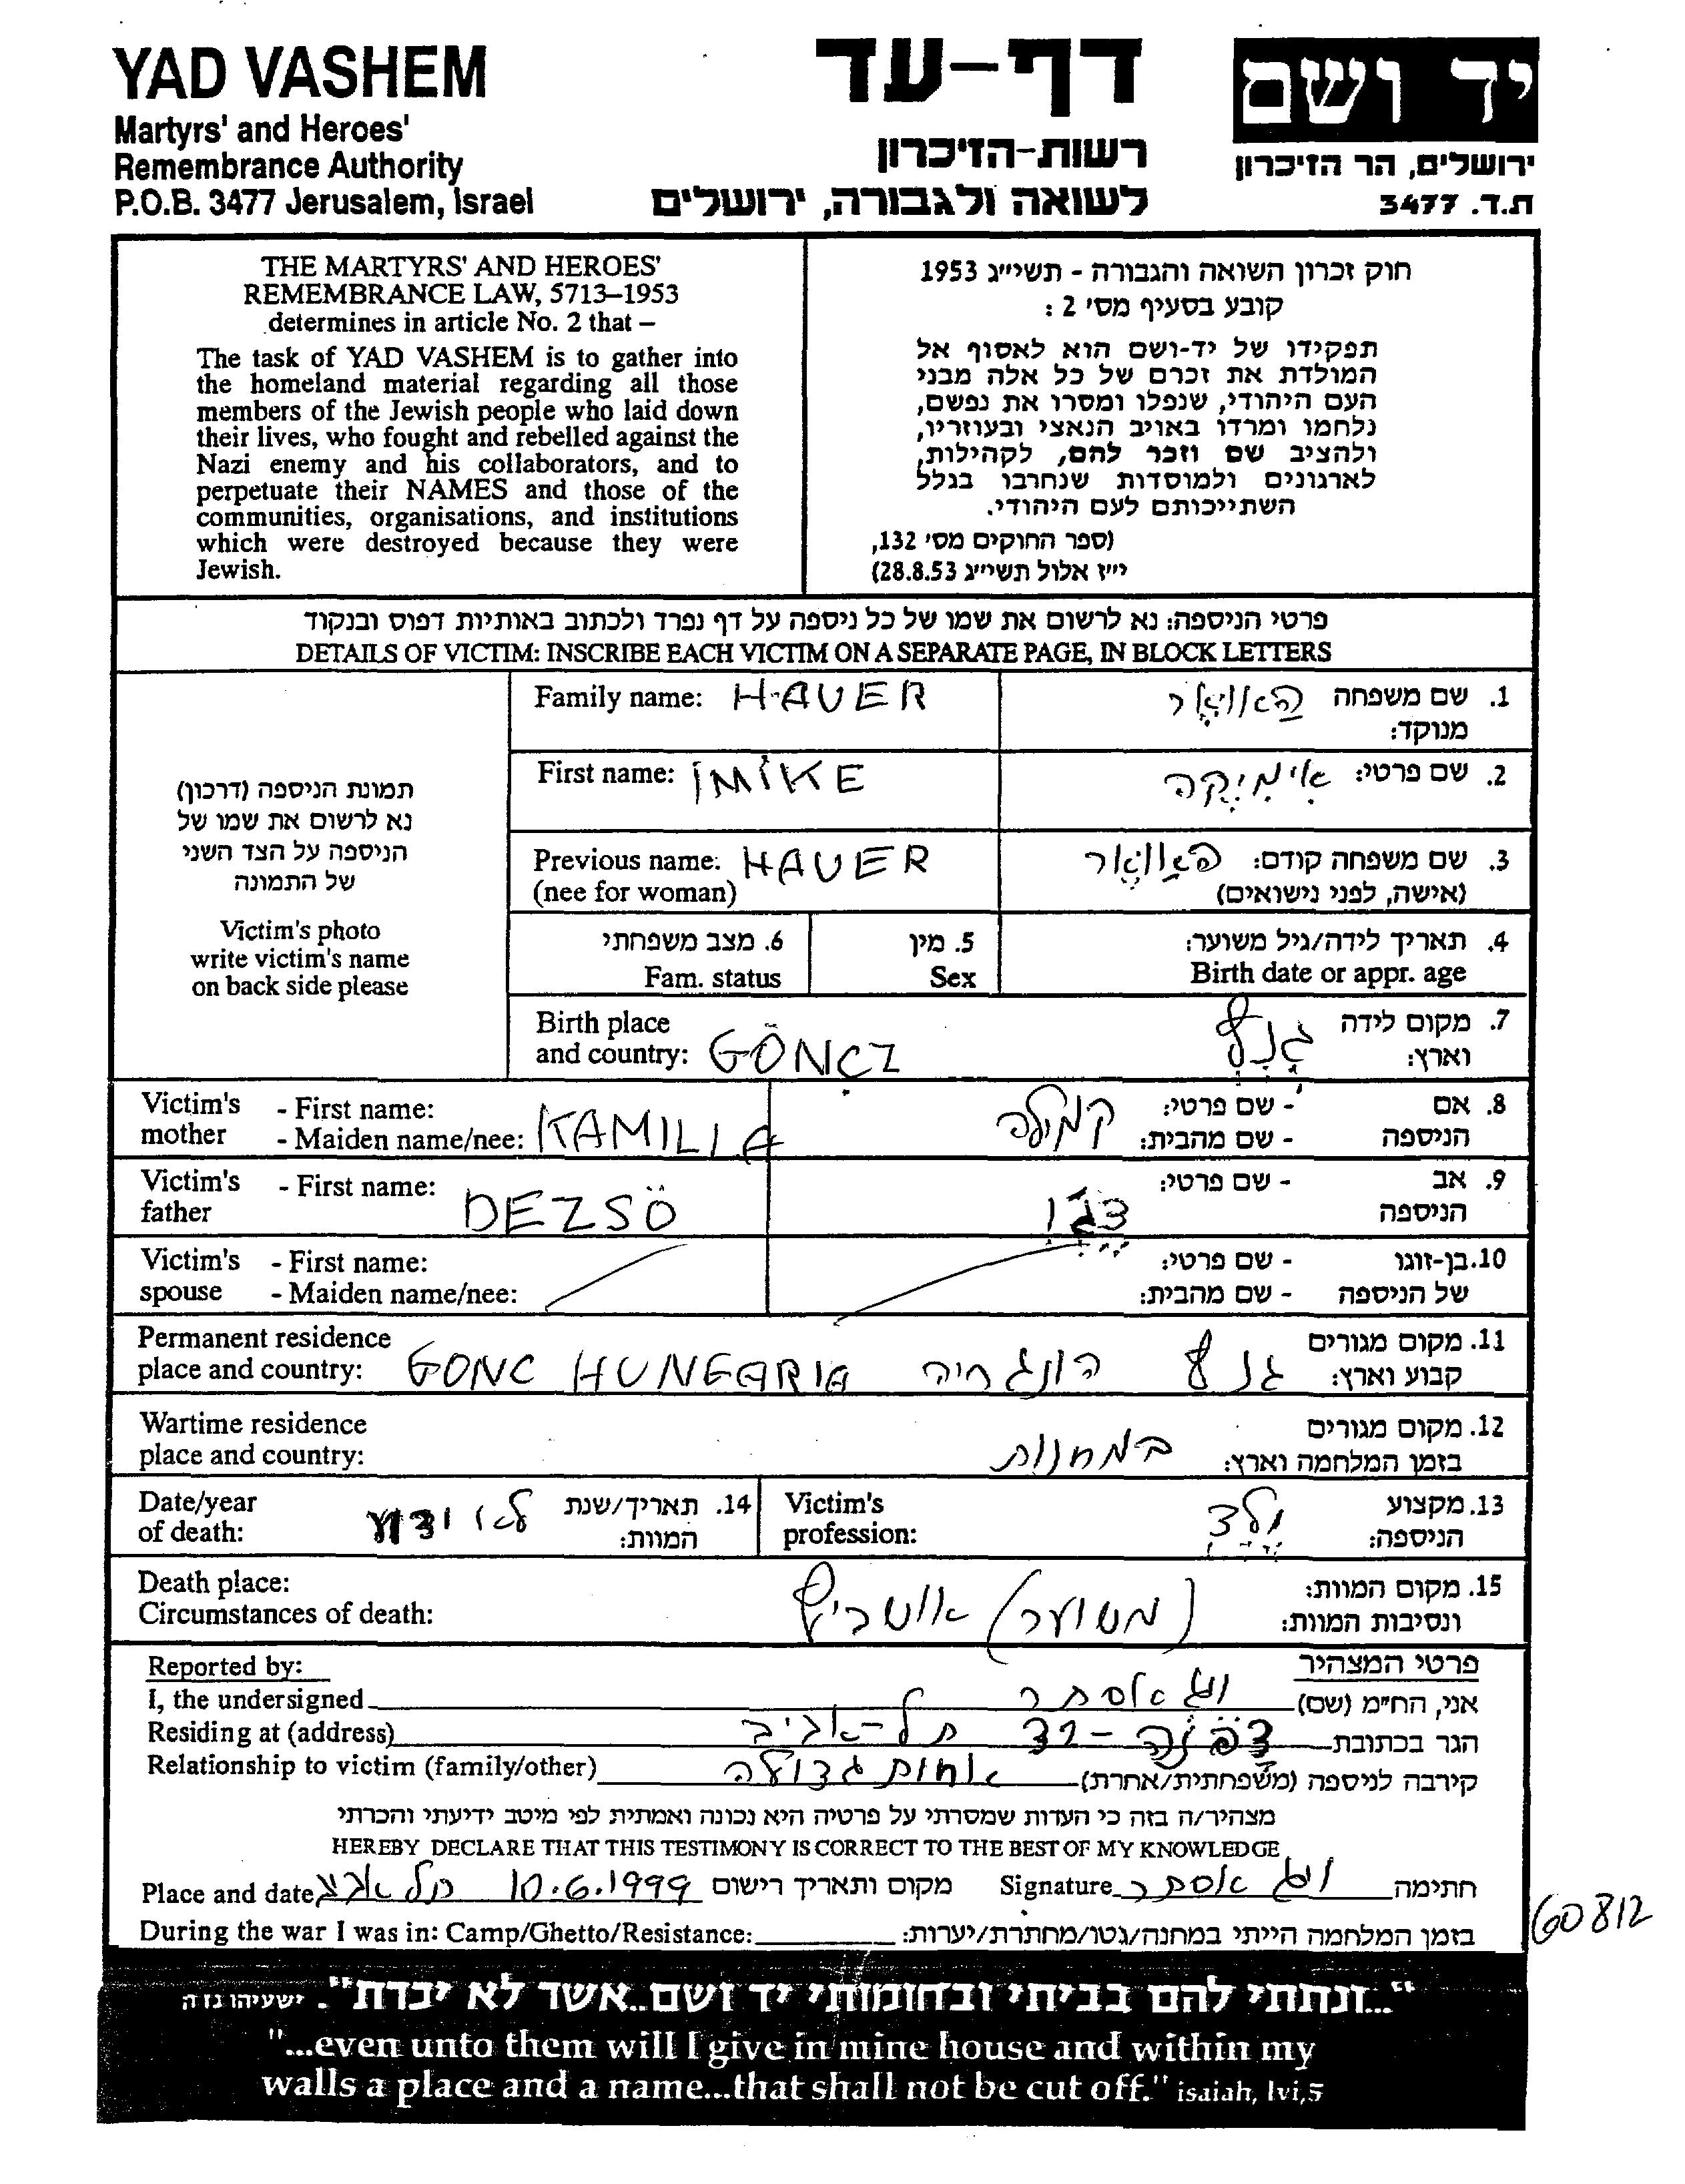 YAD VASHEM
Martyrs' and Heroes'
Remembrance Authority
P.O.B. 3477 Jerusalem, Israel
דף-עד
רשות-הזיכרון
לשואה ולגבורה, ירושלים
יד ושם
ירושלים, הר הזיכרון
ת.ד. 3477
THE MARTYRS' AND HEROES'
REMEMBRANCE LAW, 5713–1953
determines in article No. 2 that –
The task of YAD VASHEM is to gather into
the homeland material regarding all those
members of the Jewish people who laid down
their lives, who fought and rebelled against the
Nazi enemy and his collaborators, and to
perpetuate their NAMES and those of the
communities, organisations, and institutions
which were destroyed because they were
Jewish.
חוק זכרון השואה והגבורה - תשי״ג 1953
קובע בסעיף מס' 2 :
תפקידו של יד-ושם הוא לאסוף אל
המולדת את זכרם של כל אלה מבני
העם היהודי, שנפלו ומסרו את נפשם,
נלחמו ומרדו באויב הנאצי ובעוזריו,
ולהציב שם וזכר להם, לקהילות,
לארגונים ולמוסדות שנחרבו בגלל
השתייכותם לעם היהודי.
(ספר החוקים מס' 132,
י״ז אלול תשי״ג 28.8.53)
פרטי הניספה: נא לרשום את שמו של כל ניספה על דף נפרד ולכתוב באותיות דפוס ובנקוד
DETAILS OF VICTIM: INSCRIBE EACH VICTIM ON A SEPARATE PAGE, IN BLOCK LETTERS
תמונת הניספה (דרכון)
נא לרשום את שמו של
הניספה על הצד השני
של התמונה
Victim's photo
write victim's name
on back side please
Family name: HAUER
1. שם משפחה האוואר
מנוקד:
First name: IMIKE
2. שם פרטי: אימיקה
Previous name: HAUER
(nee for woman)
3. שם משפחה קודם: האוואר
(אישה, לפני נישואים)
6. מצב משפחתי
Fam. status
5. מין
Sex
4. תאריך לידה/גיל משוער:
Birth date or appr. age
Birth place
and country: GÖNCZ
7. מקום לידה
וארץ: גנץ
Victim's mother - First name:
- Maiden name/nee: KAMILIA
8. אם הניספה - שם פרטי: קמילה
- שם מהבית:
Victim's father - First name: DEZSÖ
9. אב הניספה - שם פרטי:
Victim's spouse - First name:
- Maiden name/nee:
10. בן-זוגו של הניספה - שם פרטי:
- שם מהבית:
Permanent residence
place and country: GONC HUNGARIA
11. מקום מגורים
קבוע וארץ: גנץ הונגריה
Wartime residence
place and country:
12. מקום מגורים
בזמן המלחמה וארץ: במחנות
Date/year
of death:
14. תאריך/שנת
המוות: לא ידוע
Victim's
profession:
13. מקצוע
הניספה: ילד
Death place:
Circumstances of death:
15. מקום המוות:
ונסיבות המוות: (משוער) אושביץ
Reported by:
פרטי המצהיר
I, the undersigned
אני, הח״מ (שם) אסתר
Residing at (address)
הגר בכתובת דפנה תל-אביב
Relationship to victim (family/other)
קירבה לניספה (משפחתית/אחרת) אחות גדולה
מצהיר/ה בזה כי העדות שמסרתי על פרטיה היא נכונה ואמתית לפי מיטב ידיעתי והכרתי
HEREBY DECLARE THAT THIS TESTIMONY IS CORRECT TO THE BEST OF MY KNOWLEDGE
Place and date תל אביב 10.6.1999 מקום ותאריך רישום
Signature אסתר חתימה
During the war I was in: Camp/Ghetto/Resistance:
בזמן המלחמה הייתי במחנה/גטו/מחתרת/יערות:
60812
"...ונתתי להם בביתי ובחומותי יד ושם..אשר לא יכרת". ישעיהו נו ה
"...even unto them will I give in mine house and within my
walls a place and a name...that shall not be cut off." isaiah, lvi,5